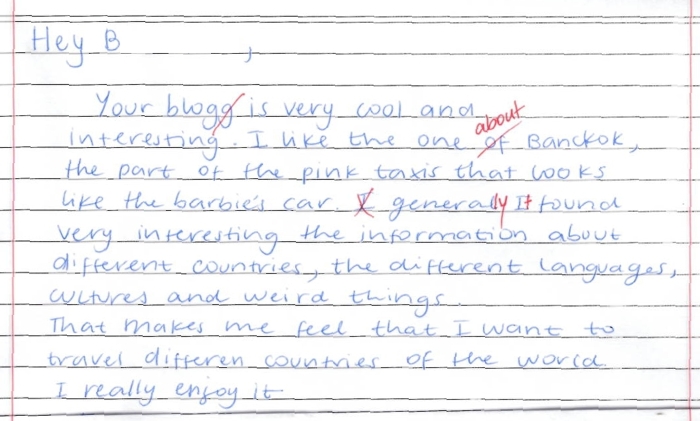 Hey B ,
Your blogg is very cool and
about
interesting. I like the one of Banckok,
the part of the pink taxis that looks
like the barbie's car. I generally It found
very interesting the information about
different countries, the different languages,
cultures and weird things.
That makes me feel that I want to
travel differen countries of the world
I really enjoy it